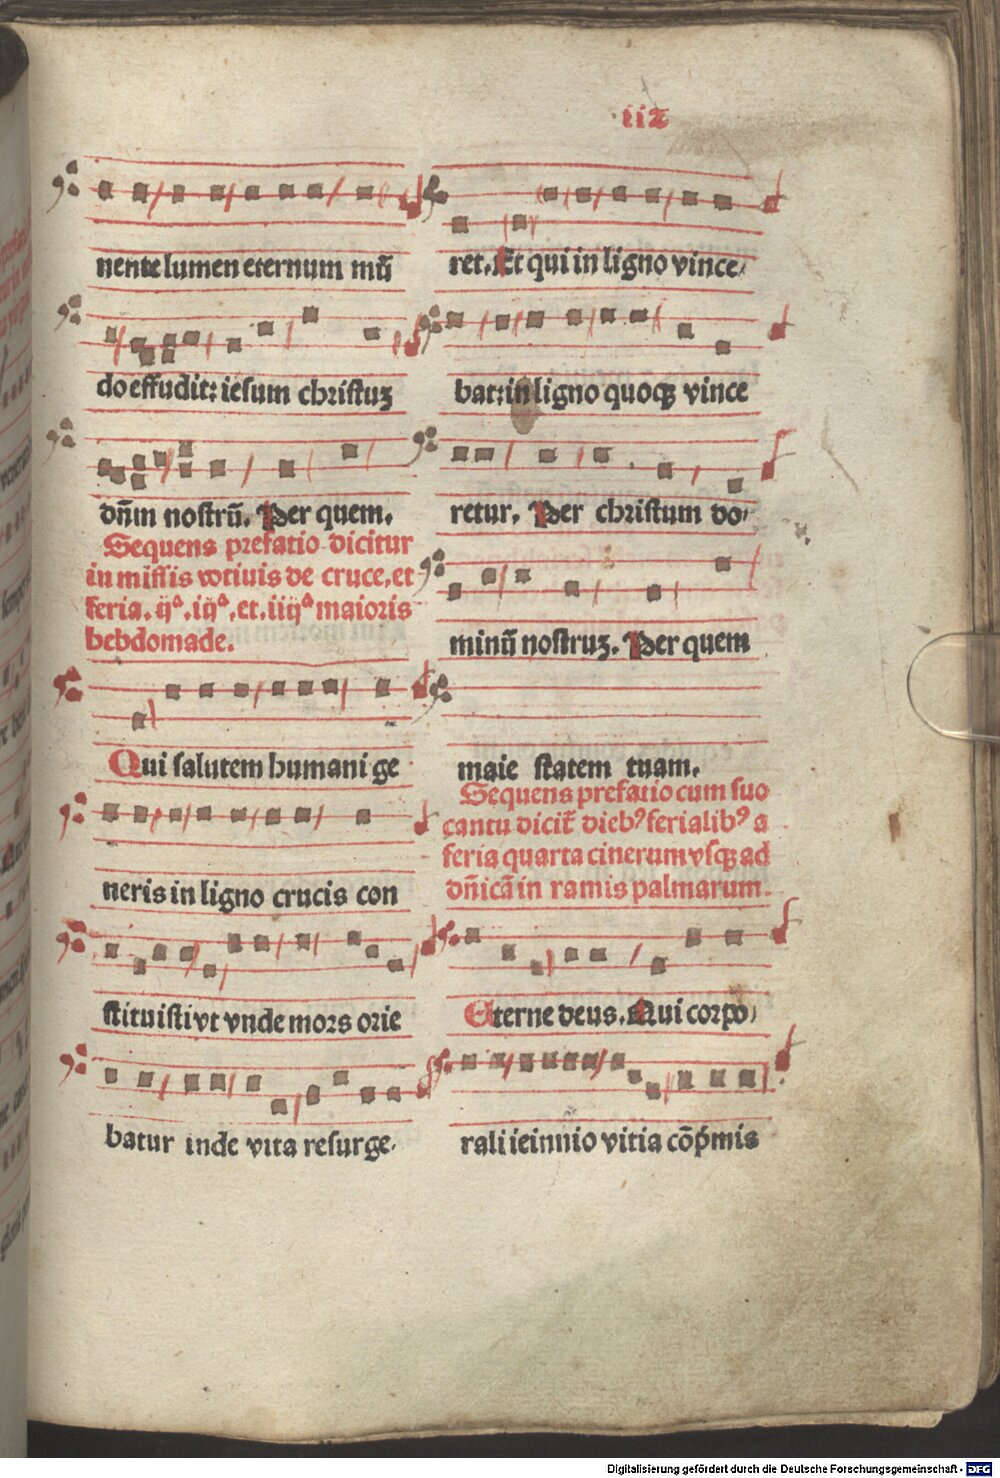 iiz
nente lumen eternum mū
do effudit: iesum christuʒ
dn̄m nostrū. Per quem.
Sequens prefatio dicitur
in missis votiuis de cruce, et
feria. ijª. iijª. et. iiijª maioris
hebdomade.
Qui salutem humani ge
neris in ligno crucis con
stituisti vt vnde mors orie
batur inde vita resurge-
ret. Et qui in ligno vince/
bat: in ligno quoqʒ vince
retur. Per christum do/
minū nostruʒ. Per quem
maie statem tuam.
Sequens prefatio cum suo
cantu dicit̄ diebꝰ ferialibꝰ a
feria quarta cinerum vsqʒ ad
dn̄icā in ramis palmarum.
Eterne deus. Qui corpo/
rali ieiunio vitia cōp̄mis
Digitalisierung gefördert durch die Deutsche Forschungsgemeinschaft - DFG